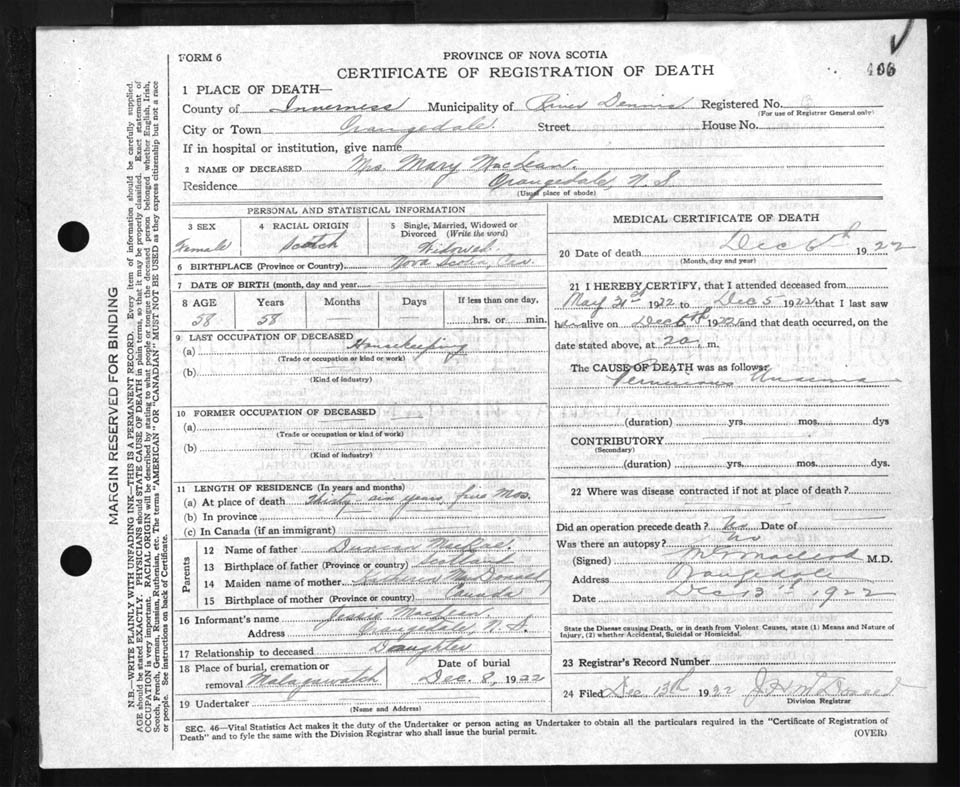 FORM 6
PROVINCE OF NOVA SCOTIA
CERTIFICATE OF REGISTRATION OF DEATH
406
1 PLACE OF DEATH—
County of Inverness Municipality of River Dennis Registered No.
(For use of Registrar General only)
City or Town Orangedale. Street House No.
If in hospital or institution, give name
2 NAME OF DECEASED Mrs. Mary MacLean.
Residence Orangedale, N. S.
(Usual place of abode)
PERSONAL AND STATISTICAL INFORMATION
3 SEX
Female
4 RACIAL ORIGIN
Scotch
5 Single, Married, Widowed or Divorced (Write the word)
Widowed.
6 BIRTHPLACE (Province or Country) Nova Scotia, Can.
7 DATE OF BIRTH (month, day and year)
8 AGE Years Months Days If less than one day,
58 58 hrs. or min.
9 LAST OCCUPATION OF DECEASED
(a) Housekeeping
(Trade or occupation or kind or work)
(b)
(Kind of industry)
10 FORMER OCCUPATION OF DECEASED
(a)
(Trade or occupation or kind of work)
(b)
(Kind of industry)
11 LENGTH OF RESIDENCE (In years and months)
(a) At place of death Thirty six years, five Mos.
(b) In province
(c) In Canada (if an immigrant)
Parents
12 Name of father Duncan MacRae.
13 Birthplace of father (Province or country) Scotland
14 Maiden name of mother McDonald
15 Birthplace of mother (Province or country) Canada
16 Informant's name Jessie MacLean
Address Orangedale, N. S.
17 Relationship to deceased Daughter
18 Place of burial, cremation or removal Malagawatch
Date of burial
Dec. 8, 1922
19 Undertaker
(Name and Address)
MEDICAL CERTIFICATE OF DEATH
20 Date of death Dec 6th 1922
(Month, day and year)
21 I HEREBY CERTIFY, that I attended deceased from
May 31st 1922 to Dec 5 1922 that I last saw
her alive on Dec 5th 1922 and that death occurred, on the
date stated above, at 2 a. m.
The CAUSE OF DEATH was as follows:
Pernicious Anaemia
(duration) yrs. mos. dys
CONTRIBUTORY
(Secondary)
(duration) yrs. mos. dys.
22 Where was disease contracted if not at place of death?
Did an operation precede death? No Date of
Was there an autopsy? No
(Signed) MacLeod M.D.
Address Orangedale
Date Dec 13th 1922
State the Disease causing Death, or in death from Violent Causes, state (1) Means and Nature of
Injury, (2) whether Accidental, Suicidal or Homicidal.
23 Registrar's Record Number
24 Filed Dec 13th 1922
Division Registrar
SEC. 46—Vital Statistics Act makes it the duty of the Undertaker or person acting as Undertaker to obtain all the particulars required in the "Certificate of Registration of
Death" and to fyle the same with the Division Registrar who shall issue the burial permit.
(OVER)
MARGIN RESERVED FOR BINDING
N.B.—WRITE PLAINLY WITH UNFADING INK—THIS IS A PERMANENT RECORD. Every item of information should be carefully supplied.
AGE should be stated EXACTLY. PHYSICIANS should STATE CAUSE OF DEATH in plain terms, so that it may be properly classified. Exact statement of
OCCUPATION is very important. RACIAL ORIGIN will be described by stating to what people or tongue the deceased person belonged whether English, Irish,
Scotch, French, German, Russian, Ruthenian, etc. The terms "AMERICAN" OR "CANADIAN" MUST NOT BE USED as they express citizenship but not a race
or people. See instructions on back of Certificate.